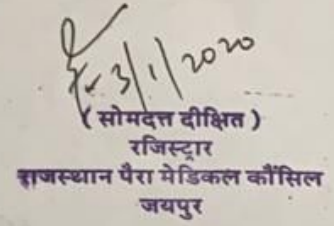 3/1/2020
( सोमदत्त दीक्षित )
रजिस्ट्रार
राजस्थान पैरा मेडिकल कौंसिल
जयपुर